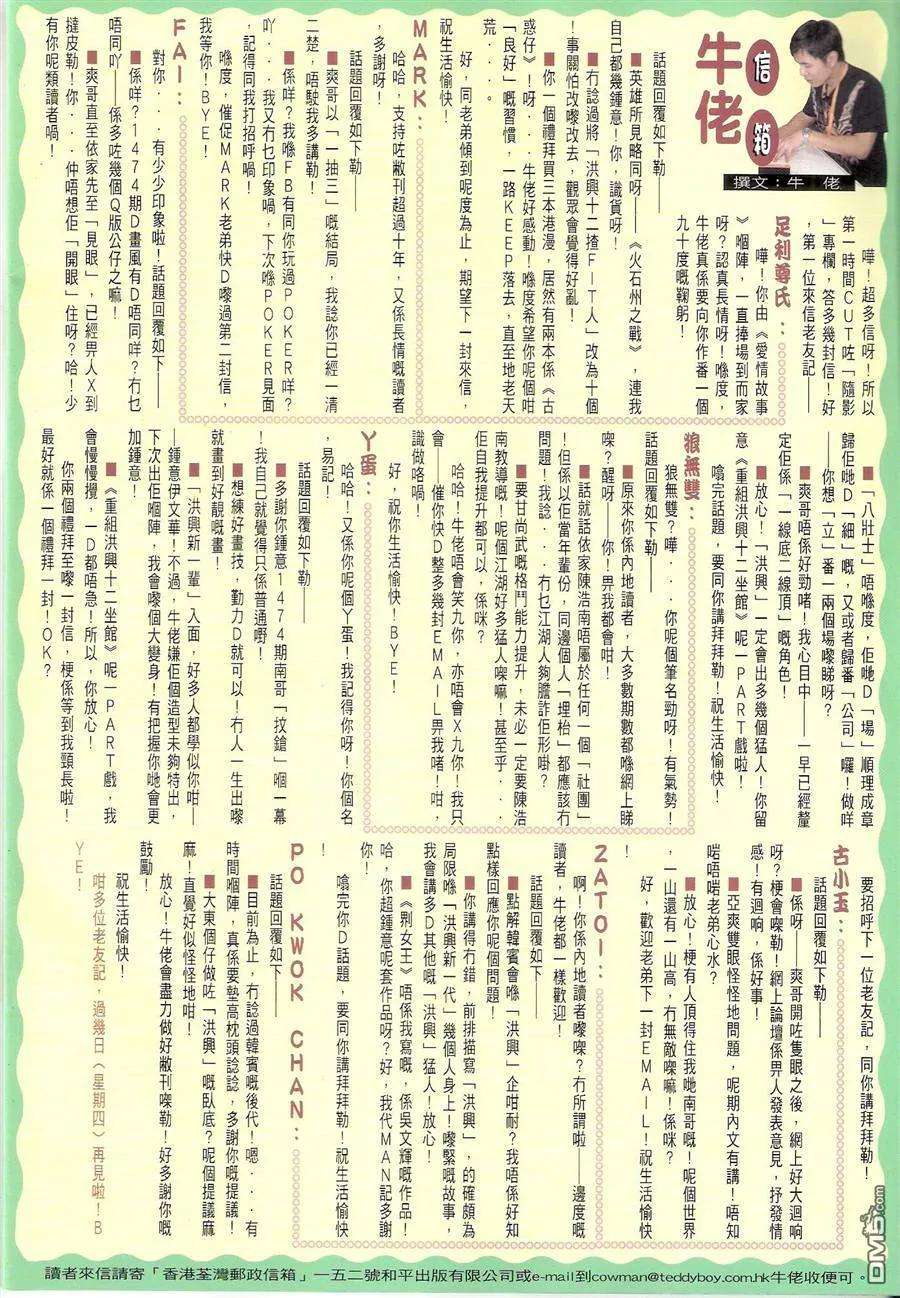 牛佬
信箱
撰文：牛　佬
嘩！超多信呀！所以
第一時間ＣＵＴ咗「隨影
」專欄，答多幾封信！好
，第一位來信老友記——
足利尊氏：
嘩！你由《愛情故事
》嗰陣，一直捧場到而家
呀？認真長情呀！喺度，
牛佬真係要向你作番一個
九十度嘅鞠躬！
話題回覆如下勒——
■英雄所見略同呀——《火石州之戰》，連我
自己都幾鍾意！你，識貨呀！
■冇諗過將「洪興十二揸ＦＩＴ人」改為十個
！事關怕改嚟改去，觀眾會覺得好亂！
■你一個禮拜買三本港漫，居然有兩本係《古
惑仔》！呀．．．牛佬好感動！喺度希望你呢個咁
「良好」嘅習慣，一路ＫＥＥＰ落去，直至地老天
荒．．．。
好，同老弟傾到呢度為止，期望下一封來信，
祝生活愉快！
ＭＡＲＫ：
哈哈，支持咗敝刊超過十年，又係長情嘅讀者
，多謝呀！
話題回覆如下勒
■爽哥以「一抽三」嘅結局，我諗你已經一清
二楚，唔駛我多講勒！
■係咩？我喺ＦＢ有同你玩過ＰＯＫＥＲ咩？
吖．．．我又冇乜印象喎，下次喺ＰＯＫＥＲ見面
，記得同我打招呼喎！
喺度，催促ＭＡＲＫ老弟快Ｄ嚟過第二封信，
我等你！ＢＹＥ！
ＦＡＩ：
對你．．．有少少印象啦！話題回覆如下——
■係咩？１４７４期Ｄ畫風有Ｄ唔同咩？冇乜
唔同吖——係多咗幾個Ｑ版公仔之嘛！
■爽哥直至依家先至「見眼」，已經畀人Ｘ到
撻皮勒！你．．．仲唔想佢「開眼」住呀？哈！少
有你呢類讀者喎！
■「八壯士」唔喺度，佢哋Ｄ「場」順理成章
歸佢哋Ｄ「細」嘅，又或者歸番「公司」囉！做咩
——你想「立」番一兩個場嚟睇呀？
■爽哥唔係好勁啫！我心目中——一早已經釐
定佢係「一線底二線頂」嘅角色！
■放心！「洪興」一定會出多幾個猛人！你留
意《重組洪興十二坐館》呢一ＰＡＲＴ戲啦！
噏完話題，要同你講拜拜勒！祝生活愉快！
狼無雙：
狼無雙？嘩．．．你呢個筆名勁呀！有氣勢！
話題回覆如下勒——
■原來你係內地讀者，大多數期數都喺網上睇
㗎？醒呀！——你！畀我都會咁！
■話就話依家陳浩南唔屬於任何一個「社團」
！但係以佢當年輩份，同邊個人「埋枱」都應該冇
問題！我諗．．．冇乜江湖人夠膽詐佢形啩？
■要甘尚武嘅格鬥能力提升，未必一定要陳浩
南教導嘅！呢個江湖好多猛人㗎嘛！甚至乎．．．
佢自我提升都可以，係咪？
哈哈！牛佬唔會笑九你，亦唔會Ｘ九你！我只
會——催你快Ｄ整多幾封ＥＭＡＩＬ畀我啫！咁，
識做咯喎！
好，祝你生活愉快！ＢＹＥ！
丫蛋：
哈哈！又係你呢個丫蛋！我記得你呀！你個名
，易記！
話題回覆如下勒——
■多謝你鍾意１４７４期南哥「抆鎗」嗰一幕
！我自己就覺得只係普通嘢！
■想練好畫技，勤力Ｄ就可以！冇人一生出嚟
就畫到好靚嘅畫！
■「洪興新一輩」入面，好多人都學似你咁——
—鍾意伊文華！不過，牛佬嫌佢個造型未夠特出，
下次出佢嗰陣，我會嚟個大變身！有把握你哋會更
加鍾意！
■《重組洪興十二坐館》呢一ＰＡＲＴ戲，我
會慢慢攪，一Ｄ都唔急！所以，你放心！
你兩個禮拜至嚟一封信，梗係等到我頸長啦！
最好就係一個禮拜一封！ＯＫ？
要招呼下一位老友記，同你講拜拜勒！
古小玉：
話題回覆如下勒——
■係呀——爽哥開咗隻眼之後，網上好大迴响
呀？梗會㗎勒！網上論壇係畀人發表意見，抒發情
感！有迴响，係好事！
■亞爽雙眼怪怪地問題，呢期內文有講！唔知
啱唔啱老弟心水？
■放心！梗有人頂得住我哋南哥嘅！呢個世界
，一山還有一山高，冇無敵㗎嘛！係咪？
好，歡迎老弟下一封ＥＭＡＩＬ！祝生活愉快
！
ＺＡＴＯＩ：
啊！你係內地讀者嚟㗎？冇所謂啦——邊度嘅
讀者，牛佬都一樣歡迎！
話題回覆如下——
■點解韓賓會喺「洪興」企咁耐？我唔係好知
點樣回應你呢個問題
■你講得冇錯，前排描寫「洪興」，的確頗為
局限喺「洪興新一代」幾個人身上！嚟緊嘅故事，
我會講多Ｄ其他嘅「洪興」猛人！放心！
■《荆女王》唔係我寫嘅，係吳文輝嘅作品！
哈，你超鍾意呢套作品呀？好，我代ＭＡＮ記多謝
你！
噏完你Ｄ話題，要同你講拜拜勒！祝生活愉快
！
ＰＯ　ＫＷＯＫ　ＣＨＡＮ：
話題回覆如下——
■目前為止，冇諗過韓賓嘅後代！嗯．．．有
時間嗰陣，真係要墊高枕頭諗諗，多謝你嘅提議！
■大東個仔做咗「洪興」嘅臥底？呢個提議麻
麻！直覺好似怪怪地咁！
放心！牛佬會盡力做好敝刊㗎勒！好多謝你嘅
鼓勵！
祝生活愉快！
咁多位老友記，過幾日（星期四）再見啦！Ｂ
ＹＥ！
讀者來信請寄「香港荃灣郵政信箱」一五二號和平出版有限公司或e-mail到cowman@teddyboy.com.hk牛佬收便可。
DM5.com